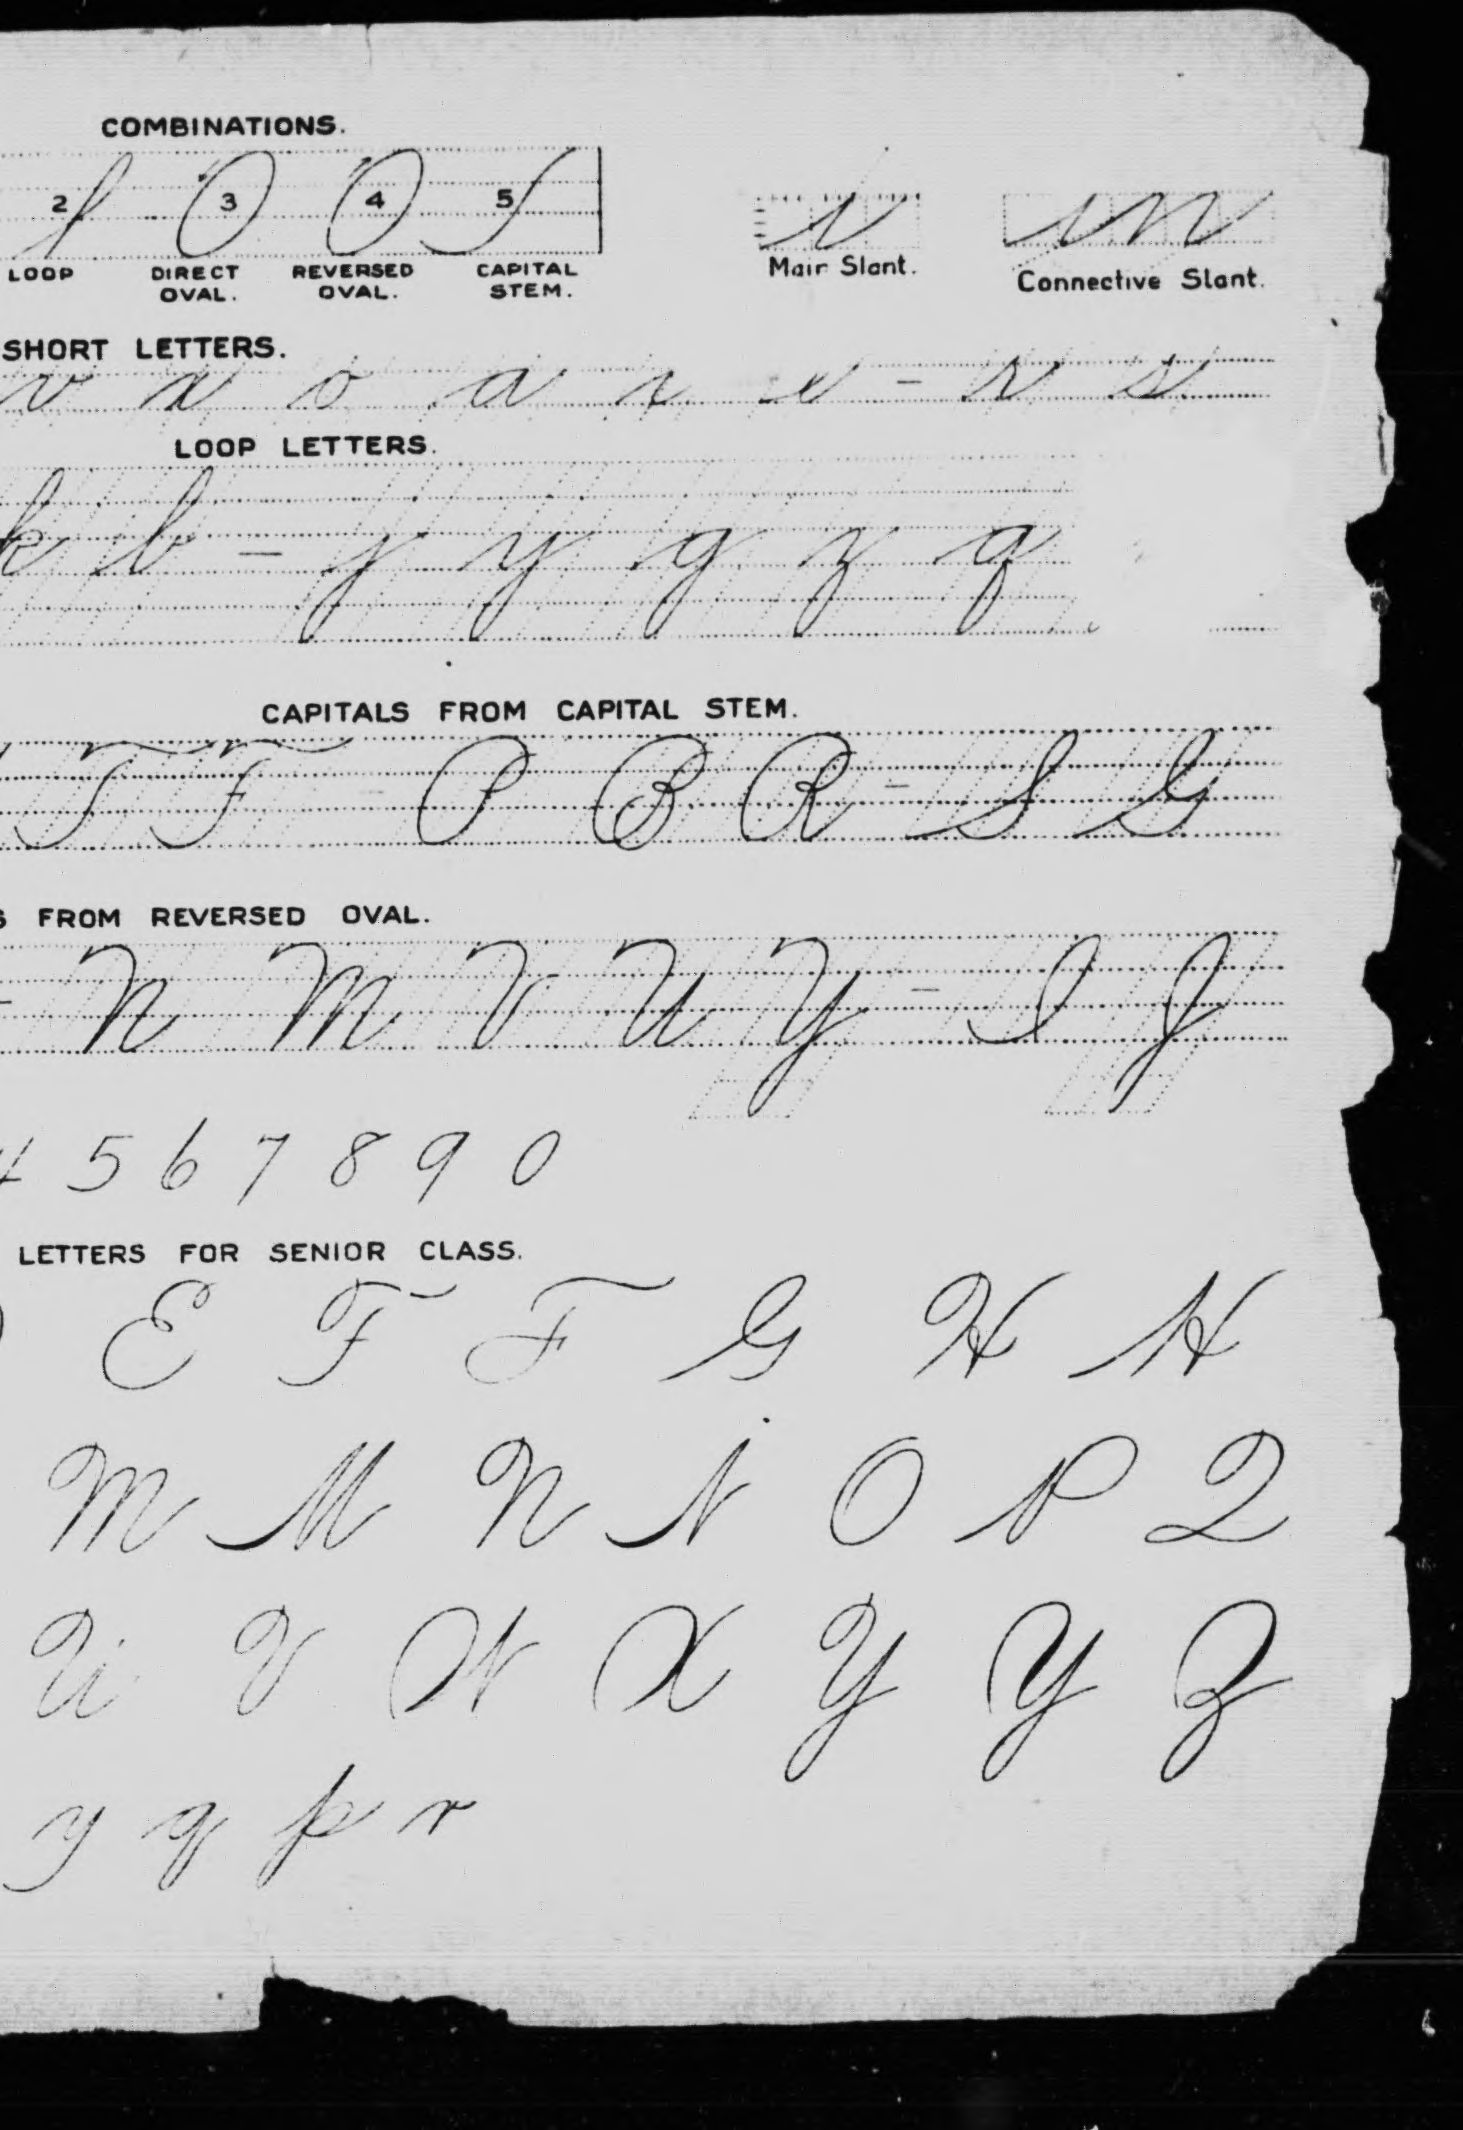 COMBINATIONS.
2 3 4 5
LOOP DIRECT OVAL. REVERSED OVAL. CAPITAL STEM.
i m
Main Slant. Connective Slant.
SHORT LETTERS.
v x o a e - r s
LOOP LETTERS.
k b - j y g z q
CAPITALS FROM CAPITAL STEM.
T F P B R - S G
FROM REVERSED OVAL.
- N M V U Y - I J
4 5 6 7 8 9 0
LETTERS FOR SENIOR CLASS.
E F F G H H
M M N N O P Q
U V W X Y Y Z
y q p r